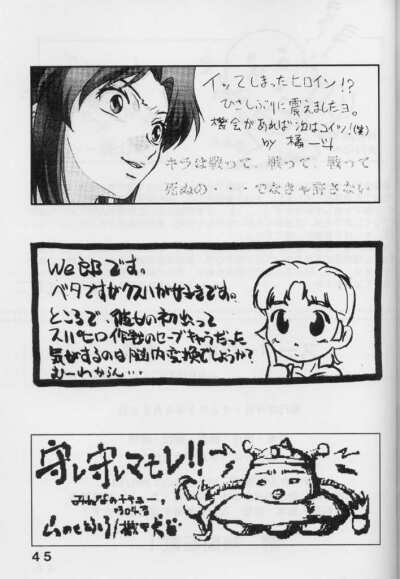 イッてしまったヒロイン!?
ひさしぶりに震えましたヨ。
機会があれば次はコイツ!(笑)
by 橘
キラは戦って、戦って、戦って
死ぬの・・・でなきゃ許さない
We郎です。
ベタですがクスハが好きです。
ところで、彼女の初出って
スパヒロ作戦のセーブキャラだった
気がするのは脳内変換でしょうか?
むーわからん…
守レ守レマモレ!!
みんなの
45